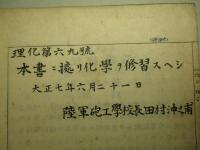 理化第六九號
本書ニ據リ化學ヲ修習スヘシ
大正七年六月二十一日
陸軍砲工學校長田村沖之甫